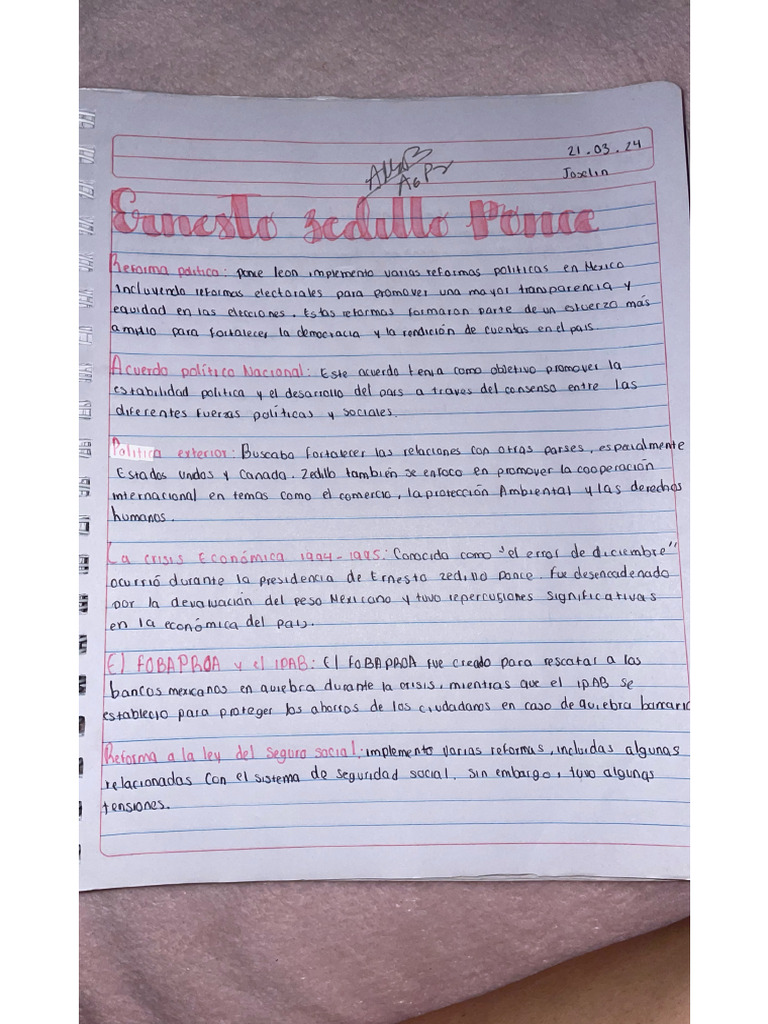 21.03.24
Joselin
Ernesto zedillo Ponce
Reforma politica: ponce leon implemento varias reformas politicas en Mexico
incluyendo reformas electorales para promover una mayor transparencia y
equidad en las elecciones. Estas reformas formaron parte de un esfuerzo más
amplio para fortalecer la democracia y la rendición de cuentas en el país.
Acuerdo político Nacional: Este acuerdo tenia como objetivo promover la
estabilidad politica y el desarrollo del país a traves del consenso entre las
diferentes fuerzas políticas y sociales.
Politica exterior: Buscaba fortalecer las relaciones con otras países, especialmente
Estados Unidos y Canada. Zedillo también se enfoco en promover la cooperación
internacional en temas como el comercio, la protección Ambiental y las derechos
humanos.
La crisis Económica 1994-1995: Conocida como "el error de diciembre"
ocurrió durante la presidencia de Ernesto zedillo Ponce. Fue desencadenado
por la devaluación del peso Mexicano y tuvo repercusiones significativas
en la económica del país.
El FOBAPROA y el IPAB: El FOBAPROA fue creado para rescatar a las
bancos mexicanos en quiebra durante la crisis, mientras que el IPAB se
establecio para proteger los ahorros de los ciudadanos en caso de quiebra bancaria
Reforma a la ley del seguro social: implemento varias reformas, incluidas algunas
relacionadas con el sistema de seguridad social. Sin embargo, tuvo algunas
tensiones.